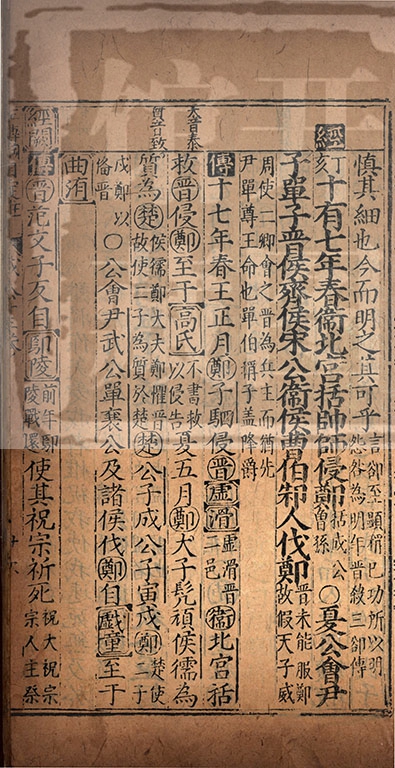 慎其細也今而明之其可乎言郤至顯稱已功所以明怨咎為明年晉殺三郤傳
經丁亥十有七年春衞北宮括帥師侵鄭括成公曾孫○夏公會尹
子單子晉侯齊侯宋公衞侯曹伯邾人伐鄭晉未能服鄭故假天子威
周使二卿會之晉為兵主而猶先尹單尊王命也單伯稱子蓋降爵
傳十七年春王正月鄭子駟侵晉虛滑虛滑晉二邑衞北宮括
大音泰
救晉侵鄭至于高氏不書救以侵告夏五月鄭大子髡頑侯獳為
質音致
質為楚侯獳鄭大夫鄭懼晉故使二子為質於楚楚公子成公子寅戍鄭楚使二子
戍鄭以備晉○公會尹武公單襄公及諸侯伐鄭自戲童至于
曲洧
經闕傳晉范文子反自鄢陵前年鄢陵戰還使其祝宗祈死祝大祝宗宗人主祭